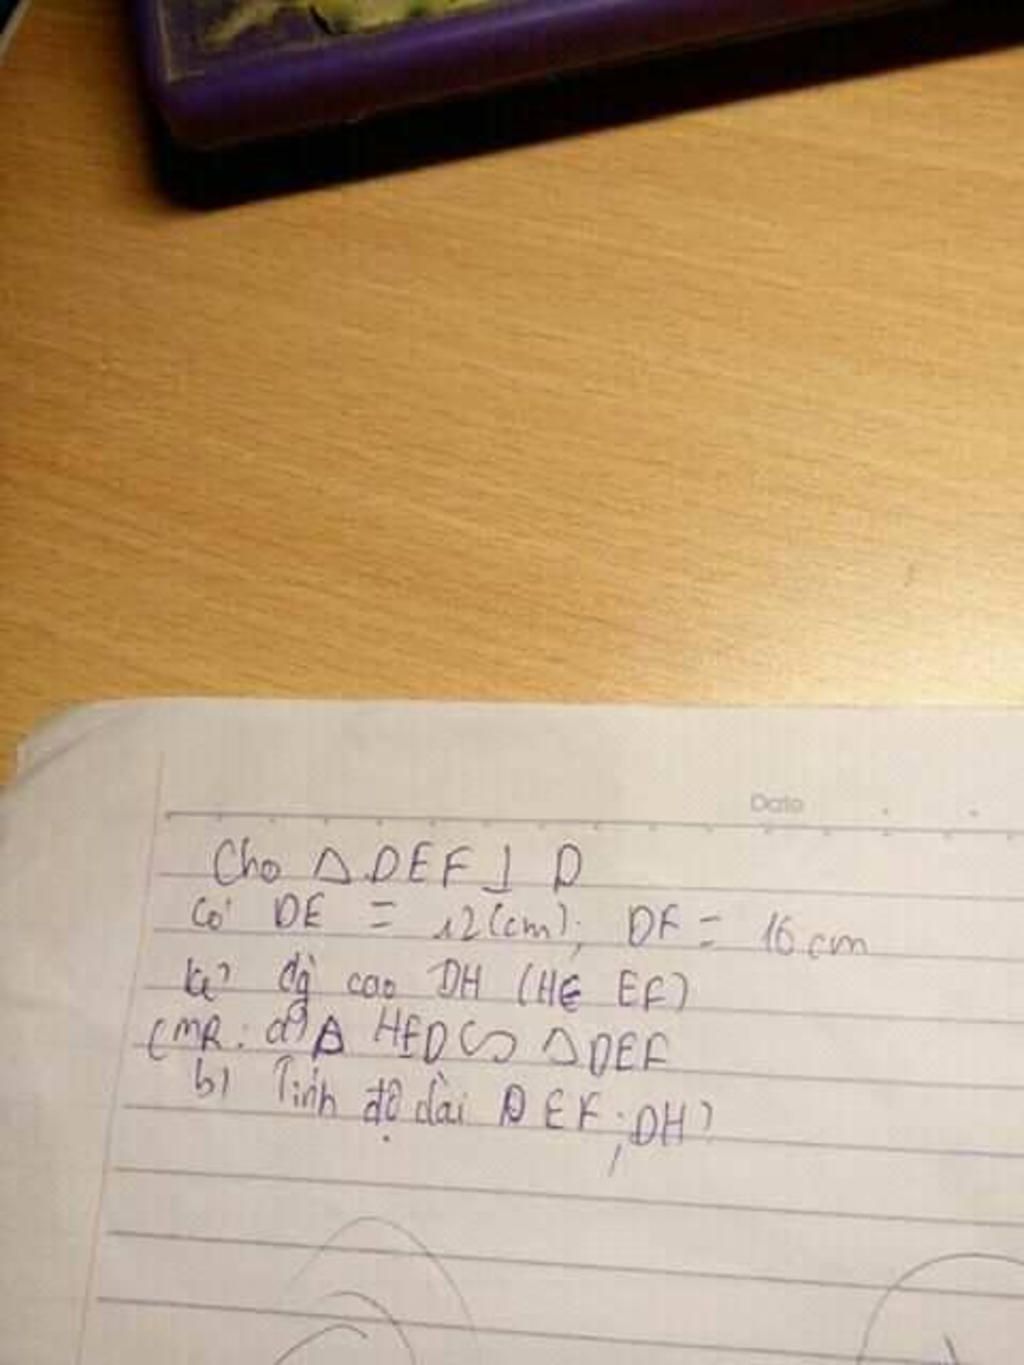 Date
Cho △ DEF ⊥ D
Có DE = 12 (cm); DF = 16 cm
Kẻ đg cao DH (H∈ EF)
CMR: a) △ HED ∽ △DEF
b) Tính độ dài EF; DH?